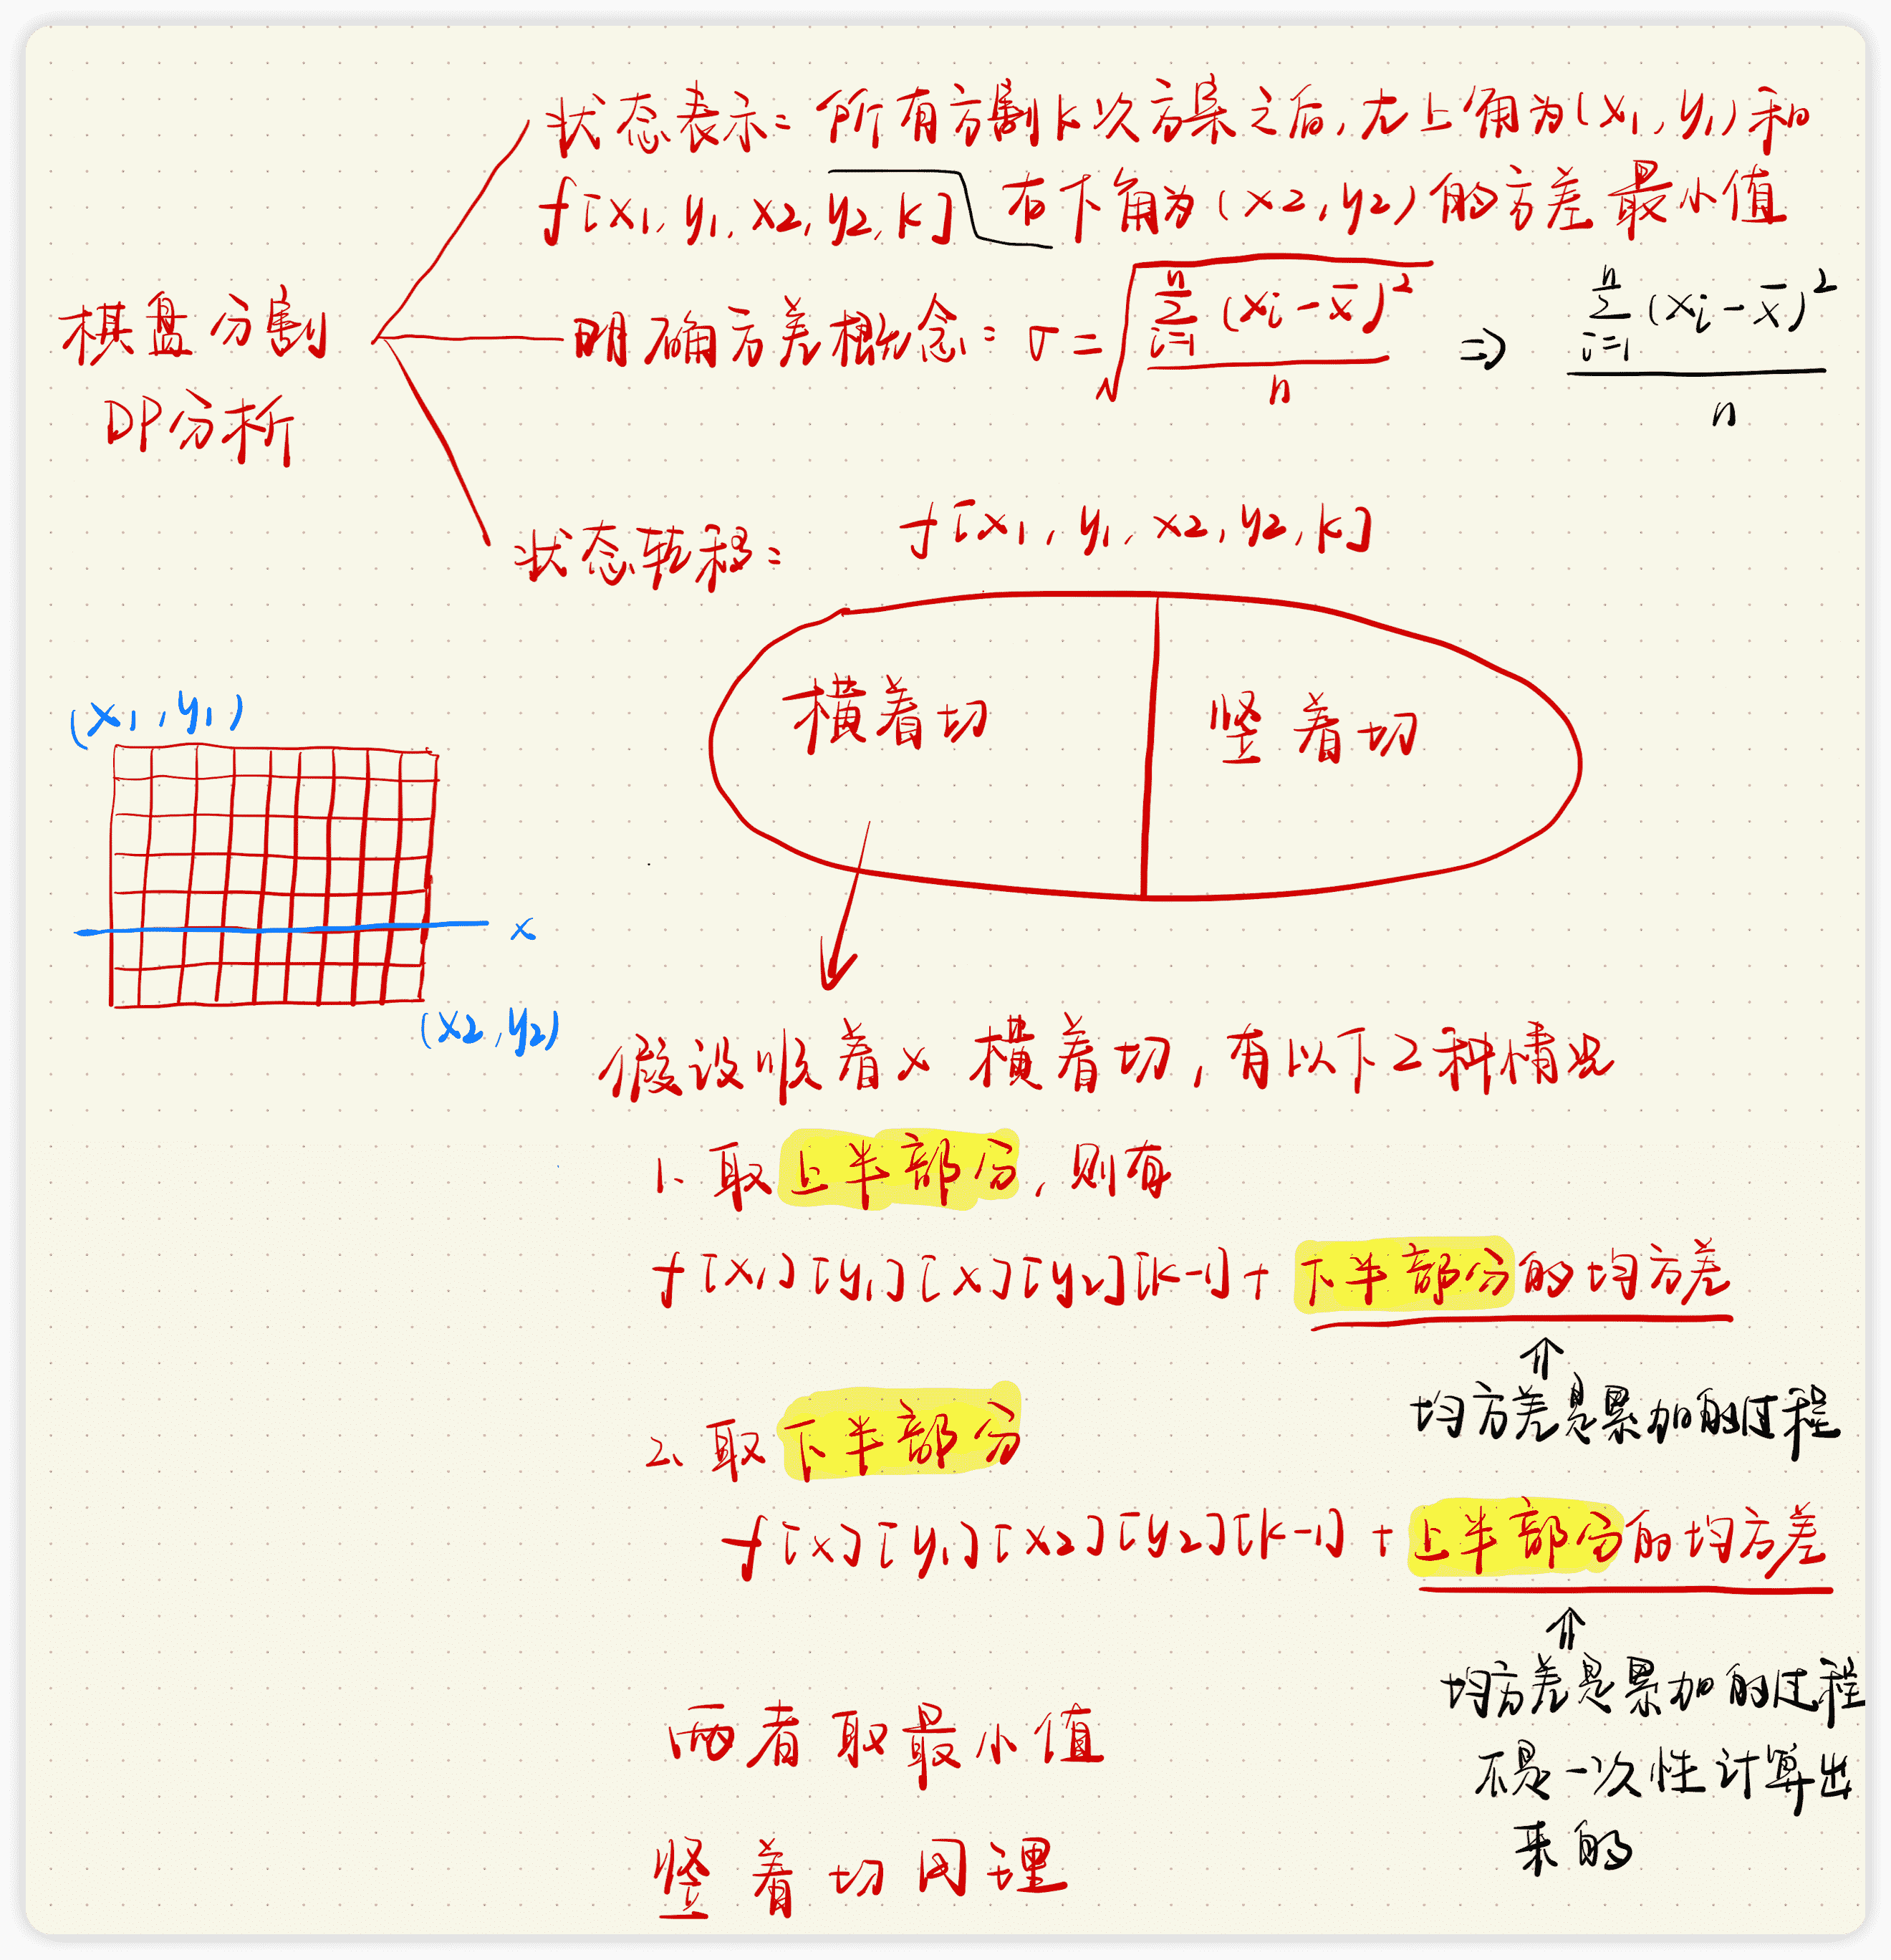 状态表示：所有方割k次方案之后,左上角为(x1,y1)和
f[x1,y1,x2,y2,k] 右下角为(x2,y2)的方差最小值
棋盘分割
DP分析
明确方差概念：σ=√(∑_{i=1}^{n}(xi-x̄)²/n) ⇒ ∑_{i=1}^{n}(xi-x̄)²/n
状态转移：
f[x1,y1,x2,y2,k]
横着切
竖着切
(x1,y1)
x
(x2,y2)
假设顺着x横着切,有以下2种情况
1、取上半部分,则有
f[x1][y1][x][y2][k-1]+下半部分的均方差
均方差是累加的过程
2、取下半部分
f[x][y1][x2][y2][k-1]+上半部分的均方差
均方差是累加的过程
不是一次性计算出
来的
两者取最小值
竖着切同理